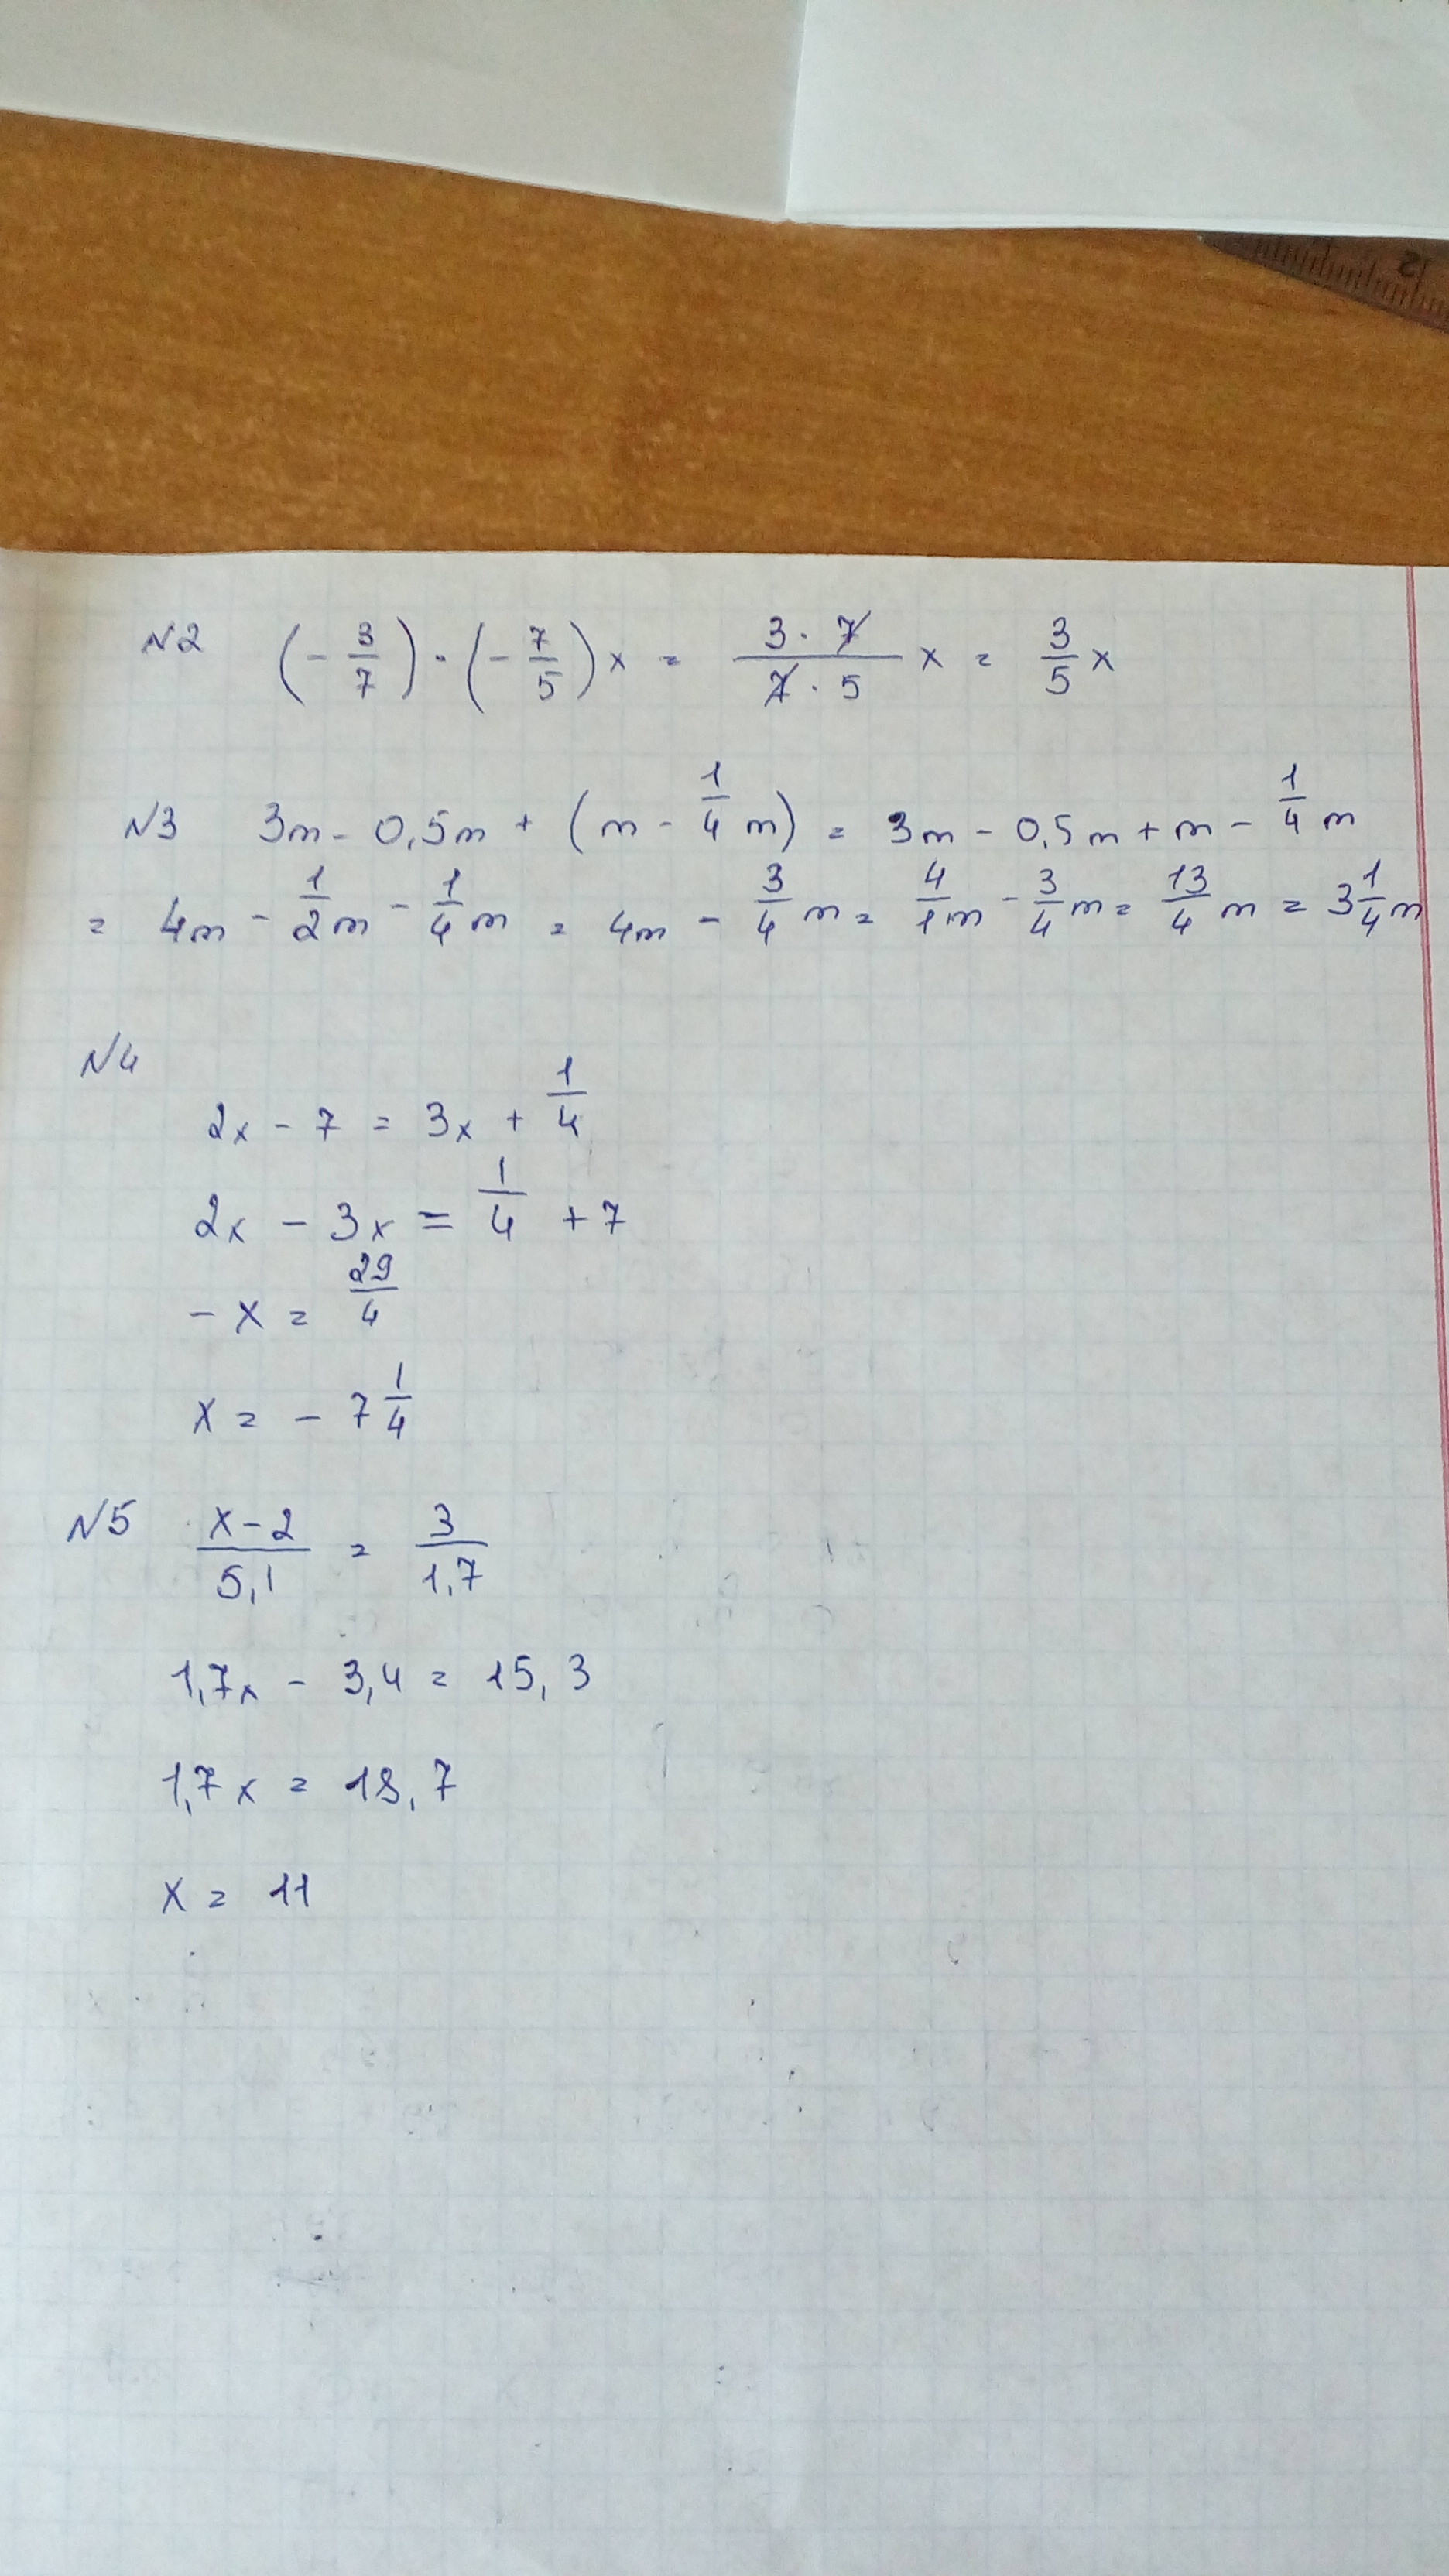 N2 (- 3/7) · (- 7/5) x = 3 · 7 / 7 · 5 x = 3/5 x
N3 3m - 0,5m + (m - 1/4 m) = 3m - 0,5m + m - 1/4 m
= 4m - 1/2 m - 1/4 m = 4m - 3/4 m = 4/1 m - 3/4 m = 13/4 m = 3 1/4 m
N4
2x - 7 = 3x + 1/4
2x - 3x = 1/4 + 7
- x = 29/4
x = - 7 1/4
N5 x - 2 / 5,1 = 3 / 1,7
1,7x - 3,4 = 15,3
1,7x = 18,7
x = 11
12